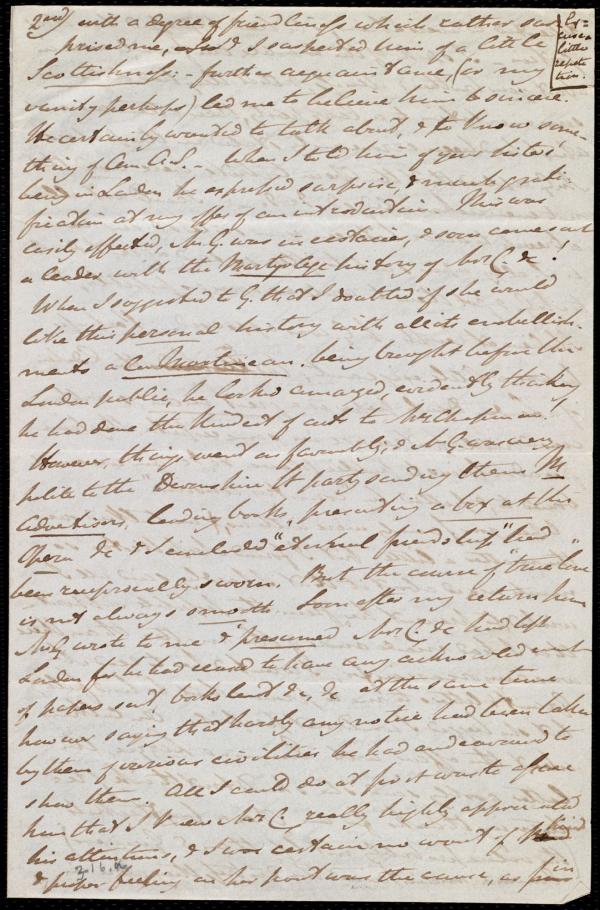 2nd) with a degree of friendliness which rather sur
prised me, and I suspected him of a little
Scottishness: - further acquaintance, (or my
vanity perhaps) led me to believe him to be sincere.
He certainly wanted to talk about, & to know some-
thing of Am. A.S. - When I told him of your sisters'
being in London he expressed surprise, & much grati-
fication at my offer of an introduction. This was
easily effected, Mr G. was in ecstacies, & soon comes out
a leader with the Martyr Age history of Mrs C. &c!
When I suggested to G. that I doubted if she would
like this personal history with all its embellish-
ments a la Martineau, being brought before the
London public, he looked amazed, evidently thinking
he had done the kindest of acts to Mrs Chapman!
However, things went on favourably, & Mr G. was very
polite to the Devonshire St party sending them M.
Advertisers, lending books, presenting a box at the
Opera &c & I concluded "eternal friendship" had
been reciprocally sworn. But the course of "true love"
is not always smooth. Soon after my return home
Mr G wrote to me & presumed Mrs C. &c had left
London for he had ceased to have any acknowledgment
of papers sent, books lent &c, &c at the same time
however saying that hardly any notice had been taken
by them of various civilities he had endeavoured to
show them. All I could do at first was to assure
him that I knew Mrs C. really highly appreciated
his attentions, & I was certain no want of kind
& proper feeling on her part was the cause, as
Ex=
cuse a
little
repeti
tion.